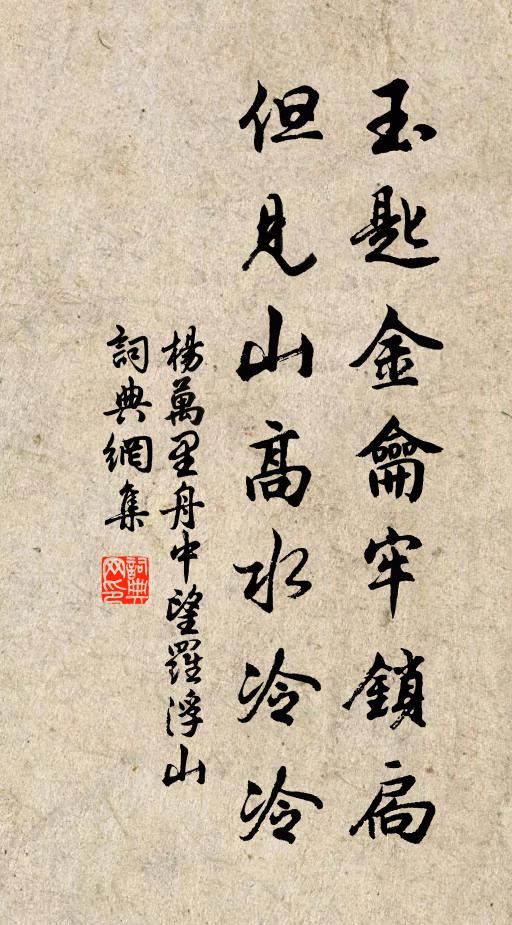 玉匙金龠牢鎖扃
但見山高水冷冷
楊萬里舟中望羅浮山
詞典網集
詞典網印